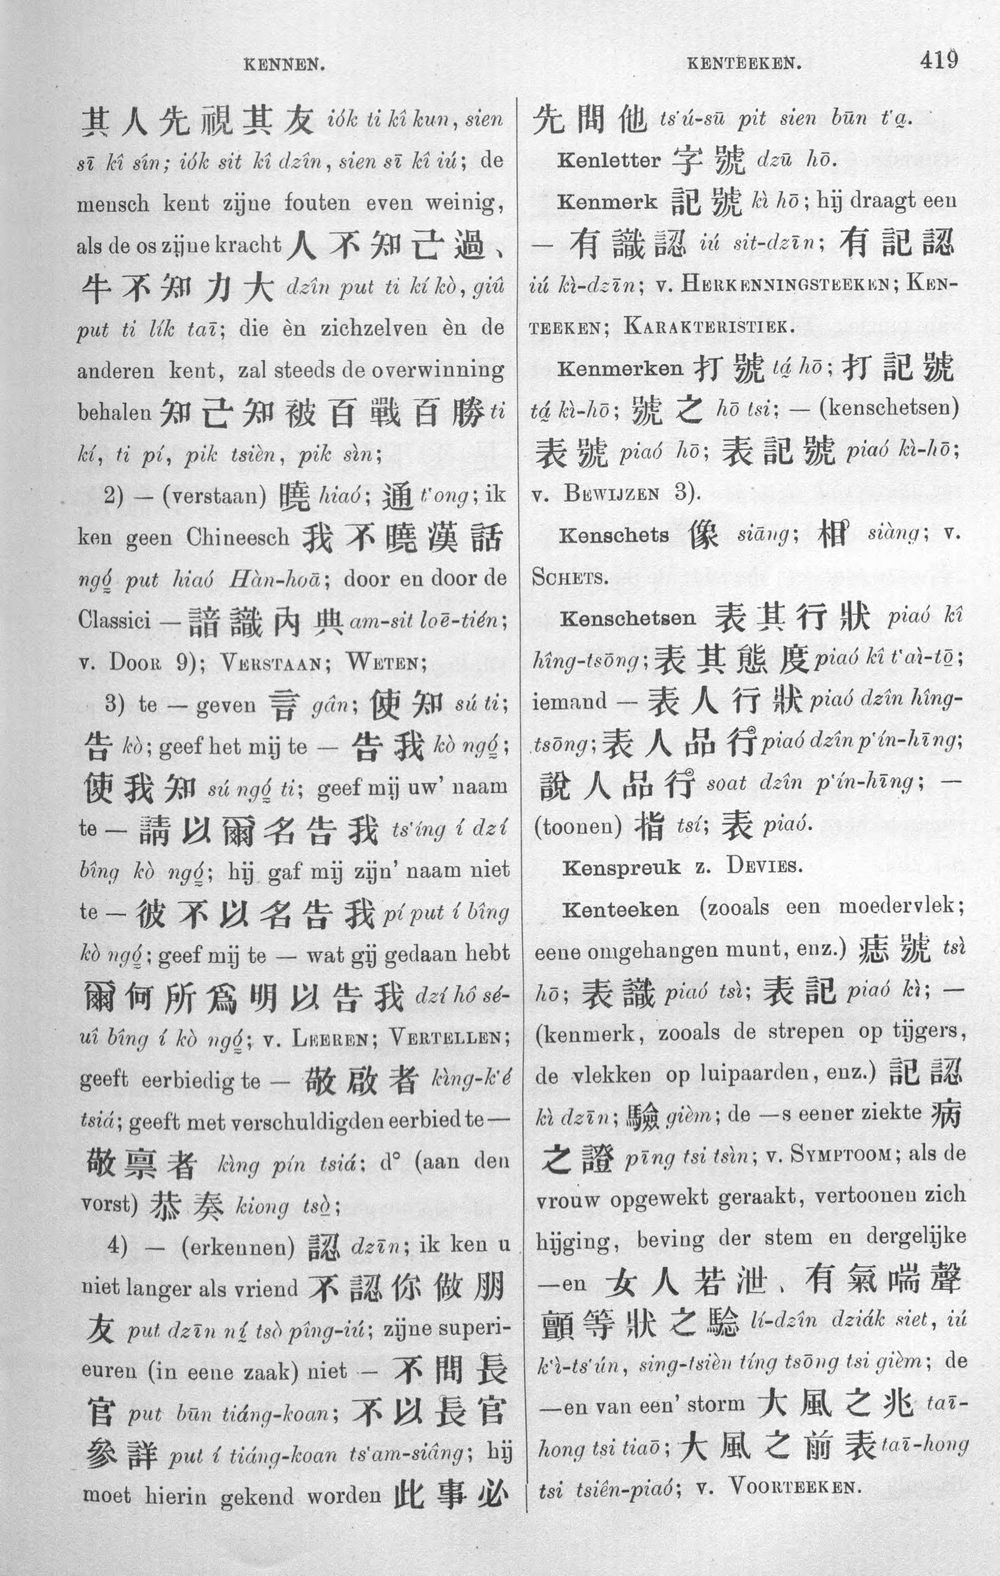 KENNEN.
KENTEEKEN.
419
其人先視其友 iók ti kî kun, sien
sī kî sîn; iók sit kî dzîn, sien sī kî iú; de
mensch kent zijne fouten even weinig,
als de os zijne kracht 人不知己過、
牛不知力大 dzîn put ti kí kò, giû
put ti lík taī; die èn zichzelven èn de
anderen kent, zal steeds de overwinning
behalen 知己知被百戰百勝 ti
kí, ti pí, pik tsièn, pik sìn;
2) — (verstaan) 曉 hiaó; 通 t‘ong; ik
ken geen Chineesch 我不曉漢話
ngó̤ put hiaó Hàn-hoā; door en door de
Classici — 諳識內典 am-sit loē-tién;
v. Door 9); Verstaan; Weten;
3) te — geven 言 gân; 使知 sú ti;
告 kò; geef het mij te — 告我 kò ngó̤;
使我知 sú ngó̤ ti; geef mij uw’ naam
te — 請以爾名告我 ts‘íng í dzí
bîng kò ngó̤; hij gaf mij zijn’ naam niet
te — 彼不以名告我 pí put í bîng
kò ngó̤; geef mij te — wat gij gedaan hebt
爾何所爲明以告我 dzí hô sé-
uî bîng í kò ngó̤; v. Leeren; Vertellen;
geeft eerbiedig te — 敬啟者 kìng-k‘é
tsiá; geeft met verschuldigden eerbied te —
敬禀者 kìng pín tsiá; d° (aan den
vorst) 恭奏 kiong tsò̤;
4) — (erkennen) 認 dzīn; ik ken u
niet langer als vriend 不認你做朋
友 put dzīn ní̤ tsò pîng-iú; zijne superi-
euren (in eene zaak) niet — 不問長
官 put būn tiáng-koan; 不以長官
參詳 put í tiáng-koan ts‘am-siâng; hij
moet hierin gekend worden 此事必
先問他 ts‘ú-sū pit sien būn t‘a̤.
Kenletter 字號 dzū hō.
Kenmerk 記號 kì hō; hij draagt een
— 有識認 iú sit-dzīn; 有記認
iú kì-dzīn; v. Herkenningsteeken; Ken-
teeken; Karakteristiek.
Kenmerken 打號 tá̤ hō; 打記號
tá̤ kì-hō; 號之 hō tsi; — (kenschetsen)
表號 piaó hō; 表記號 piaó kì-hō;
v. Bewijzen 3).
Kenschets 像 siāng; 相 siàng; v.
Schets.
Kenschetsen 表其行狀 piaó kî
hîng-tsōng; 表其態度 piaó kî t‘aì-tō̤;
iemand — 表人行狀 piaó dzîn hîng-
tsōng; 表人品行 piaó dzîn p‘ín-hīng;
說人品行 soat dzîn p‘ín-hīng; —
(toonen) 指 tsí; 表 piaó.
Kenspreuk z. Devies.
Kenteeken (zooals een moedervlek;
eene omgehangen munt, enz.) 痣號 tsì
hō; 表識 piaó tsì; 表記 piaó kì; —
(kenmerk, zooals de strepen op tijgers,
de vlekken op luipaarden, enz.) 記認
kì dzīn; 驗 gièm; de —s eener ziekte 病
之證 pīng tsi tsìn; v. Symptoom; als de
vrouw opgewekt geraakt, vertoonen zich
hijging, beving der stem en dergelijke
—en 女人若泄、有氣喘聲
顫等狀之騐 lí-dzîn dziák siet, iú
k‘ì-ts‘ún, sing-tsièn tíng tsōng tsi gièm; de
—en van een’ storm 大風之兆 taī-
hong tsi tiaō; 大風之前表 taī-hong
tsi tsiên-piaó; v. Voorteeken.